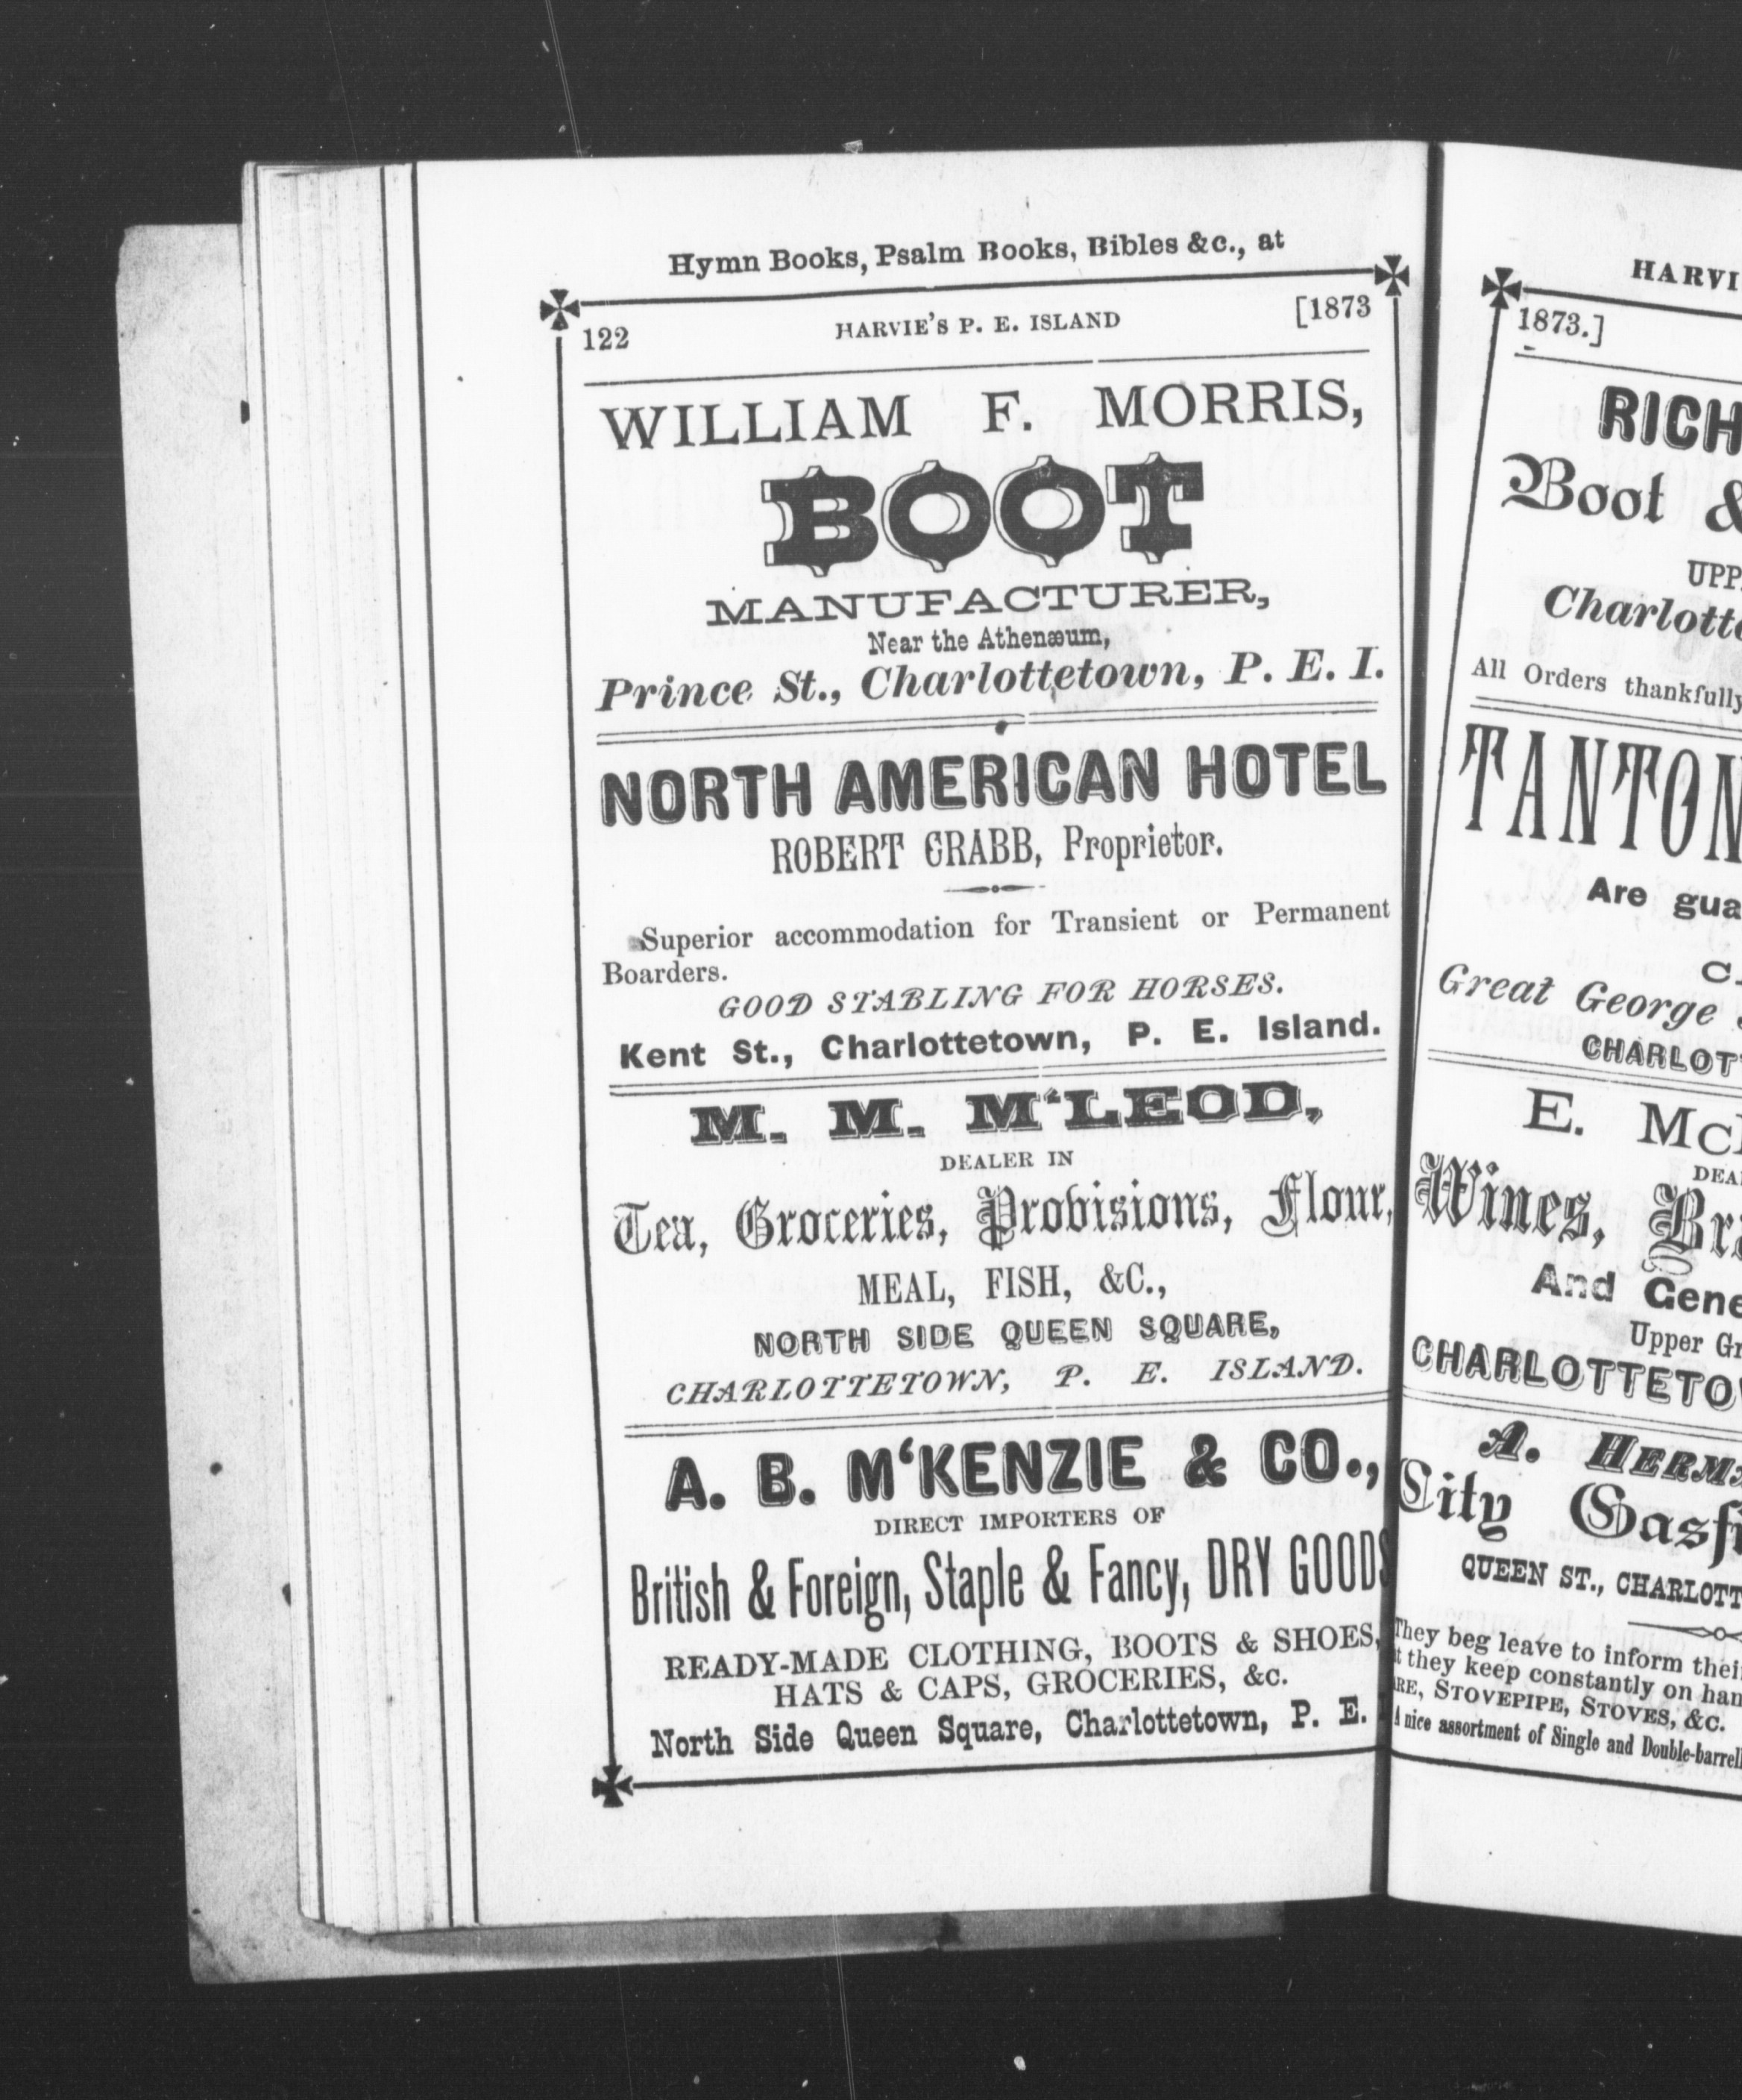 Hymn Books, Psalm Books, Bibles &c., at
122 HARVIE'S P. E. ISLAND [1873
WILLIAM F. MORRIS,
BOOT
MANUFACTURER,
Near the Athenæum,
Prince St., Charlottetown, P. E. I.
NORTH AMERICAN HOTEL
ROBERT CRABB, Proprietor.
Superior accommodation for Transient or Permanent
Boarders.
GOOD STABLING FOR HORSES.
Kent St., Charlottetown, P. E. Island.
M. M. M‘LEOD,
DEALER IN
Tea, Groceries, Provisions, Flour,
MEAL, FISH, &C.,
NORTH SIDE QUEEN SQUARE,
CHARLOTTETOWN, P. E. ISLAND.
A. B. M‘KENZIE & CO.,
DIRECT IMPORTERS OF
British & Foreign, Staple & Fancy, DRY GOODS
READY-MADE CLOTHING, BOOTS & SHOES,
HATS & CAPS, GROCERIES, &c.
North Side Queen Square, Charlottetown, P. E.
HARVI
1873.]
RICH
Boot &
UPP
Charlotte
All Orders thankfully
TANTON
Are gua
C.
Great George
CHARLOT
E. McK
DEA
Wines, Bra
And Gene
Upper Gr
CHARLOTTETO
A. HERM
City Gasfi
QUEEN ST., CHARLOTT
They beg leave to inform thei
they keep constantly on han
RE, STOVEPIPE, STOVES, &C.
A nice assortment of Single and Double-barrel